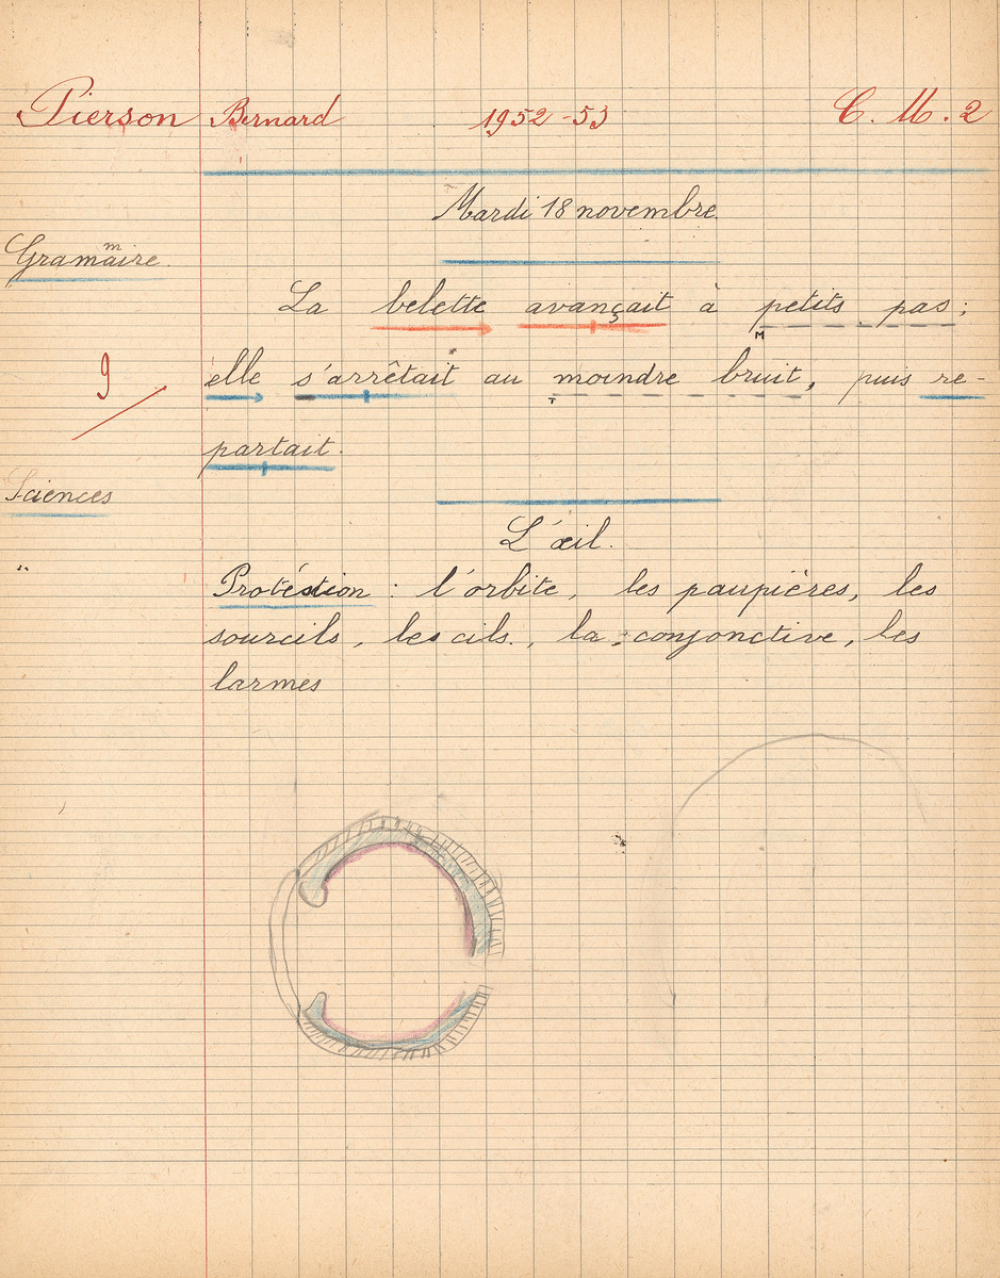 Pierson Bernard 1952-53 C. M. 2
Mardi 18 novembre
Grammaire
La belette avançait à petits pas ;
M
9 elle s'arrêtait au moindre bruit, puis re-
T
partait.
Sciences
L'œil.
Protection : l'orbite, les paupières, les
sourcils, les cils, la conjonctive, les
larmes